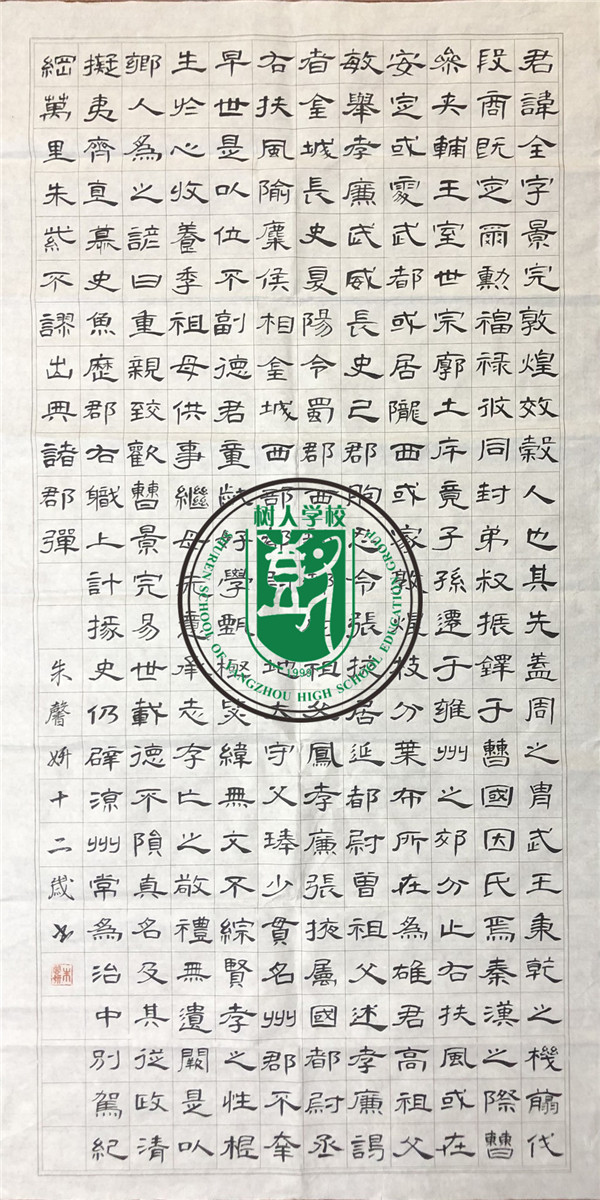 君諱全字景完敦煌效穀人也其先蓋周之胄武王秉乾之機翦伐
段商既定爾勳福祿攸同封弟叔振鐸于曹國因氏焉秦漢之際曹
參夾輔王室世宗廓土斥竟子孫遷于雍州之郊分止右扶風或在
安定或處武都或居隴西或家敦煌枝分葉布所在為雄君高祖父
敏舉孝廉武威長史巴郡朐忍令張掖居延都尉曾祖父述孝廉謁
者金城長史夏陽令蜀郡西部都尉祖父鳳孝廉張掖屬國都尉丞
右扶風隃麋侯相金城西部都尉北地太守父琫少貫名州郡不幸
早世是以位不副德君童齔好學甄極毖緯無文不綜賢孝之性根
生於心收養季祖母供事繼母先意承志存亡之敬禮無遺闕是以
鄉人為之諺曰重親致歡曹景完易世載德不隕真名及其從政清
擬夷齊直慕史魚歷郡右職上計掾史仍辟涼州常為治中別駕紀
綱萬里朱紫不謬出典諸郡彈
朱馨妍十二歲書
树人学校
SHUREN SCHOOL OF YANGZHOU HIGH SCHOOL EDUCATION GROUP
1999